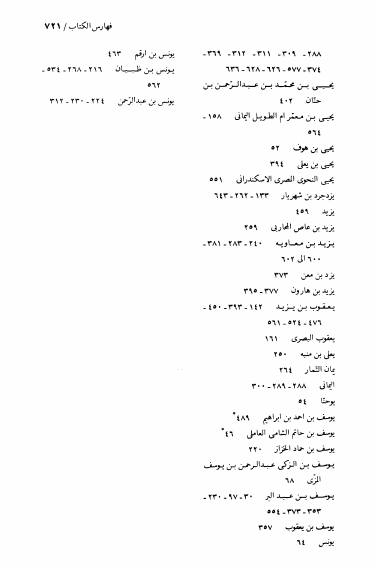 فهارس الكتاب / ٧٢١
٢٨٨ ـ ٣٠٩ ـ ٣١١ ـ ٣١٢ ـ ٣٦٩ ـ
٣٧٤ ـ ٥٧٧ ـ ٦٢٦ ـ ٦٢٨ ـ ٦٣٦
يحيـى بـن محمّـد بـن عبـدالـرّحمن بـن
حنّان ٤٠٢
يحيى بـن معمّر ام الطويـل اليمانى ١٥٨ ـ
٥٦٤
يحيى بن هوف ٥٢
يحيى بن يعلى ٣٩٤
يحيى النحوى الصرى الاسكندرانى ٥٥١
يزدجرد بن شهريار ١٣٣ ـ ٢٦٢ ـ ٦٤٣
يزيد ٤٥٩
يزيد بن عاص المحاربى ٢٥٩
يـزيـد بـن معـاويـه ٢٤٠ ـ ٢٨٣ ـ ٣٨١ ـ
٦٠٠ الى ٦٠٢
يزد بن معن ٣٧٣
يزيد بن هارون ٣٧٧ ـ ٣٩٥
يـعـقوب بـن يـزيـد ١٤٢ ـ ٣٩٣ ـ ٤٥٠ ـ
٤٧٦ ـ ٥٢٤ ـ ٥٦١
يعقوب البصرى ١٦١
يعلى بن منبه ٢٥٠
يمان التمّار ٢٦٤
اليمانى ٢٨٨ ـ ٢٨٩ ـ ٣٠٠
يوحنّا ٥٤
يوسف بن احمد بن ابراهيم ٤٨٩*
يوسف بن حاتم الشامى العاملى ٤٦*
يوسف بن حماد الخزاز ٢٢٠
يـوسـف بـن الـزكى عبـدالـرحمن بـن يـوسف
المزّى ٦٨
يـوسـف بـن عبـد البر ٣٠ ـ ٩٧ ـ ٢٣٠ ـ
٣٥٣ ـ ٣٧٣ ـ ٥٥٤
يوسف بن يعقوب ٣٥٧
يونس ٦٤
يونس بن ارقم ٤٦٣
يـونس بـن ظـبـيـان ٢١٦ ـ ٢٦٨ ـ ٥٣٤ ـ
٥٦٢
يونس بن عبدالرّحمن ٢٢٤ ـ ٢٣٠ ـ ٣١٢